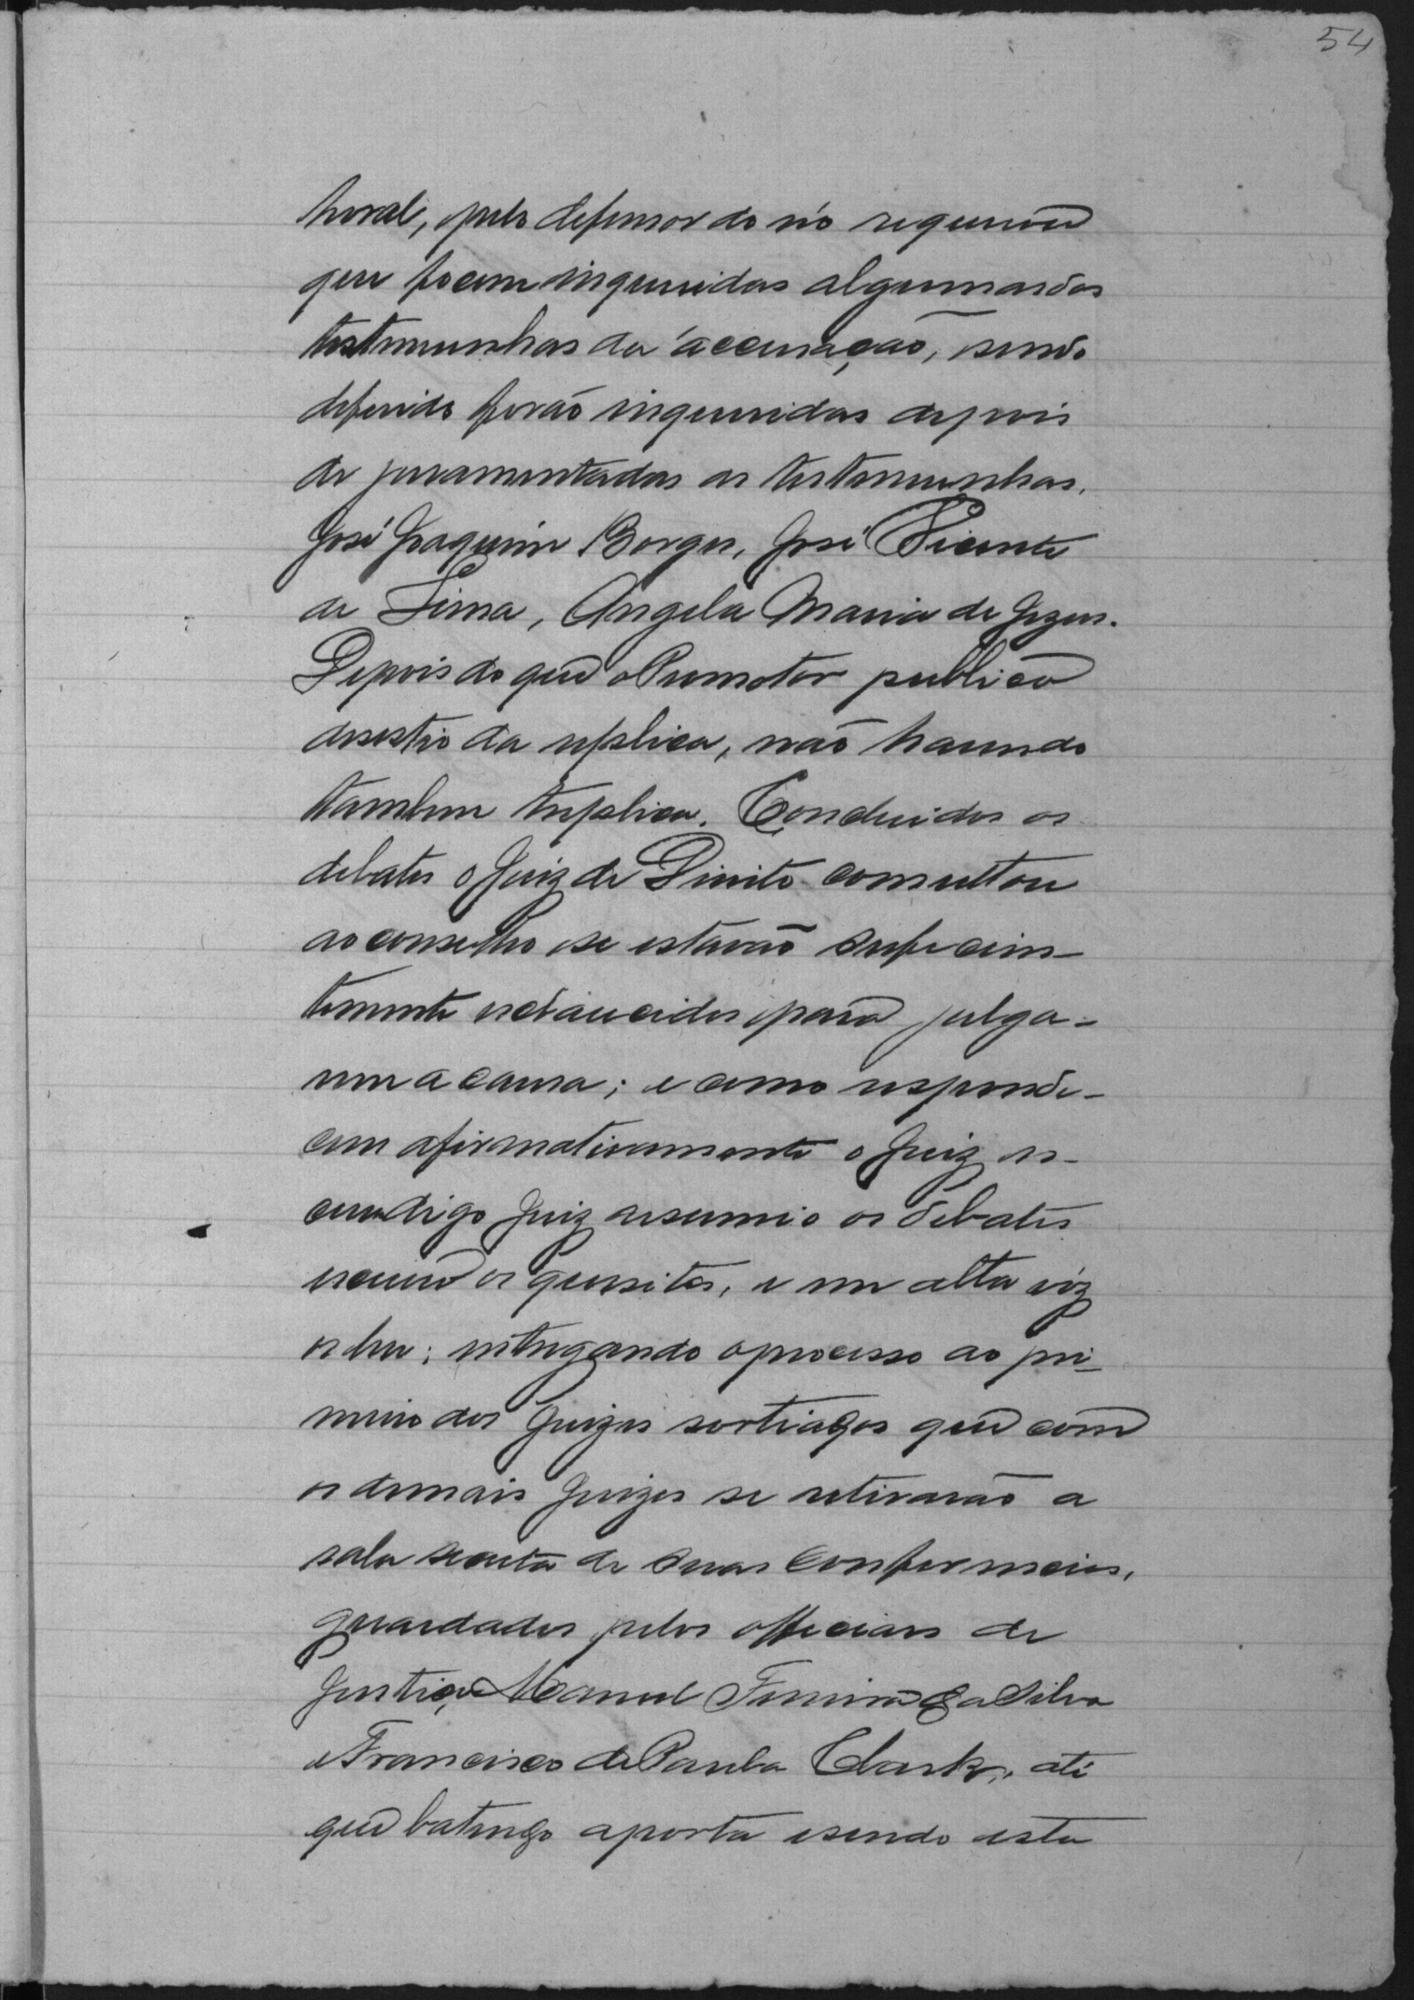 54
horal, pelo defensor do réo requereu
que focem inqueridas algumas das
testemunhas da accusação, sendo
deferido forão inqueridas depois
de juramentadas as testemunhas.
José Joaquim Borges, José Vicente
de Lima, Angela Maria de Jezus.
Depois do que o Promotor publico
desestio da replica, não havendo
tambem treplica. Concluidos os
debates o Juiz de Direito consultou
ao conselho se estavão suficien-
temente esclarecidos para julga-
rem a causa; e como responde-
cem afirmativamente o Juiz es-
digo Juiz resumio os debates
escreveu os quesitos, e em alta vóz
os leu; entregando o processo ao pri-
meiro dos Juizes sorteados que com
os demais Juizes se retirarão a
sala secreta de suas conferencias,
guardados pelos officiaes de
Justiça Manoel Ferreira da Silva
e Francisco de Paula Clark, até
que batendo a porta e sendo esta